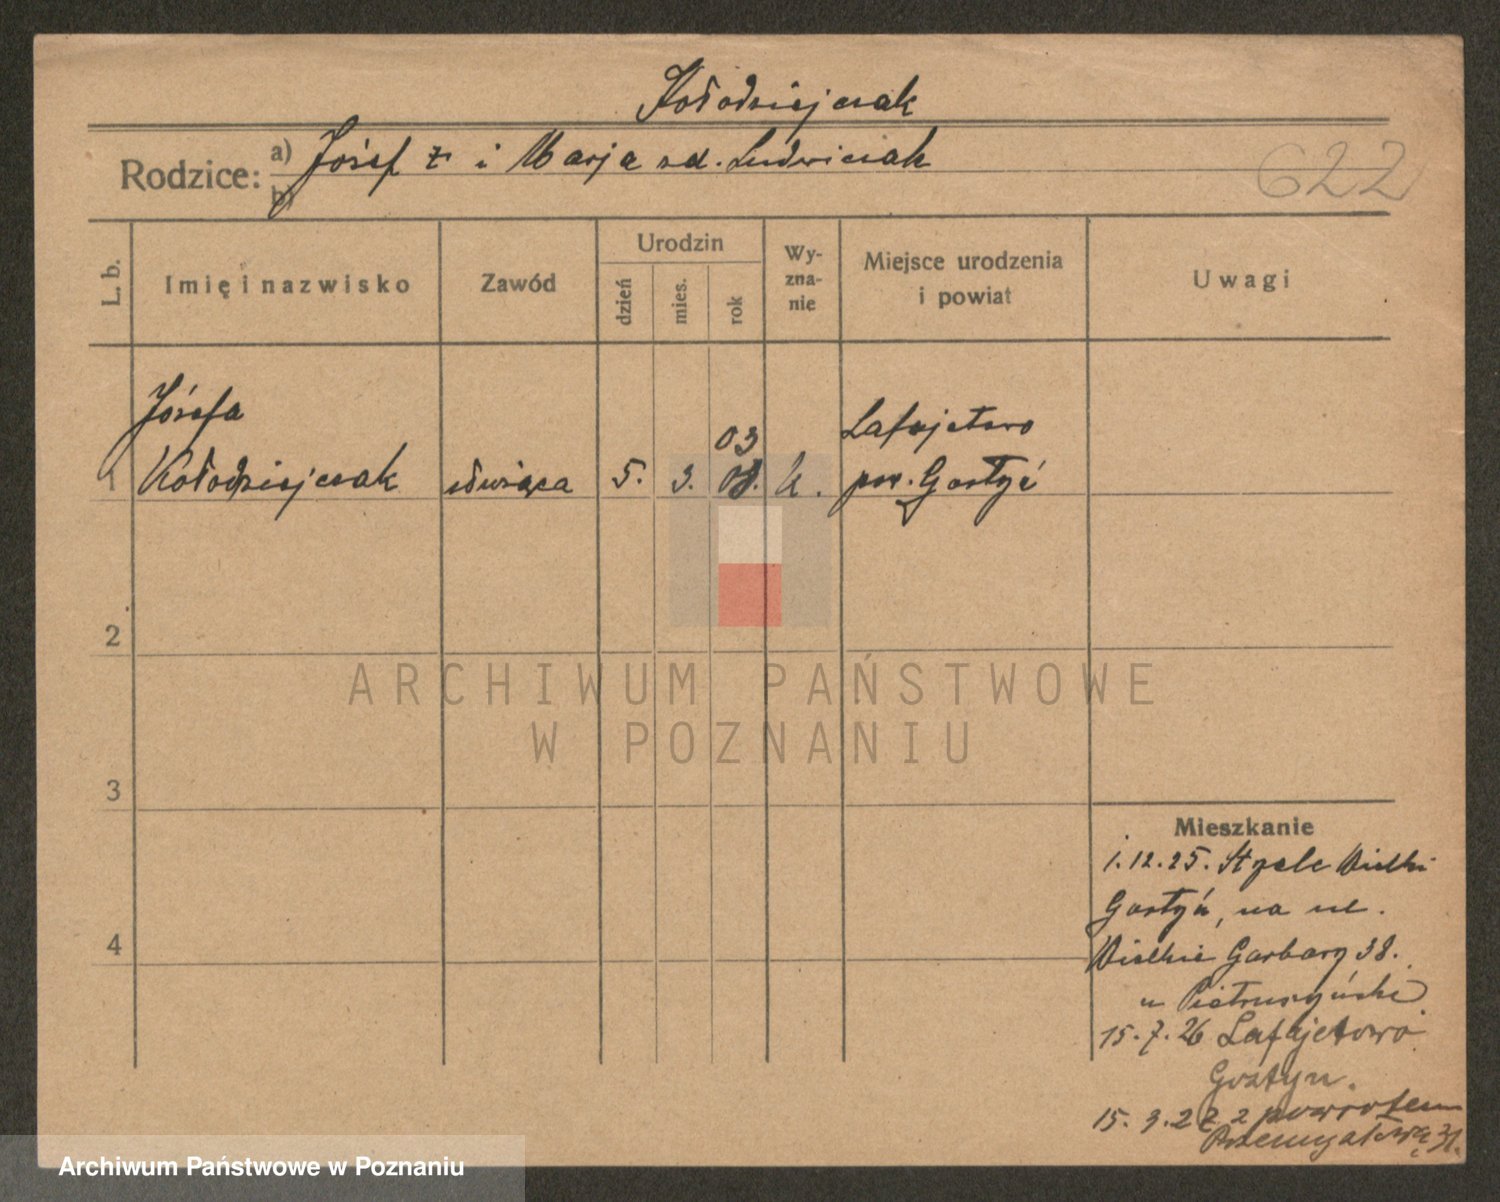 Kołodziejczak
Rodzice: a) Józef z i Marja zd. Ludwiczak
b)
622
L. b.
Imię i nazwisko
Zawód
Urodzin
dzień
mies.
rok
Wy-
zna-
nie
Miejsce urodzenia
i powiat
Uwagi
Józefa
03
Lafajetowo
1
Kołodziejczak
służąca
5.
3.
03.
k.
pow. Gostyń
2
3
4
Mieszkanie
1.12.25. Wielki
Gostyń, na ul.
Wielkie Garbary 38.
u Pietruszyński
15.7.26 Lafajetowo
Gostyn.
15.3.27 z powrotem
Przemysłowa 31.
ARCHIWUM PAŃSTWOWE
W POZNANIU
Archiwum Państwowe w Poznaniu